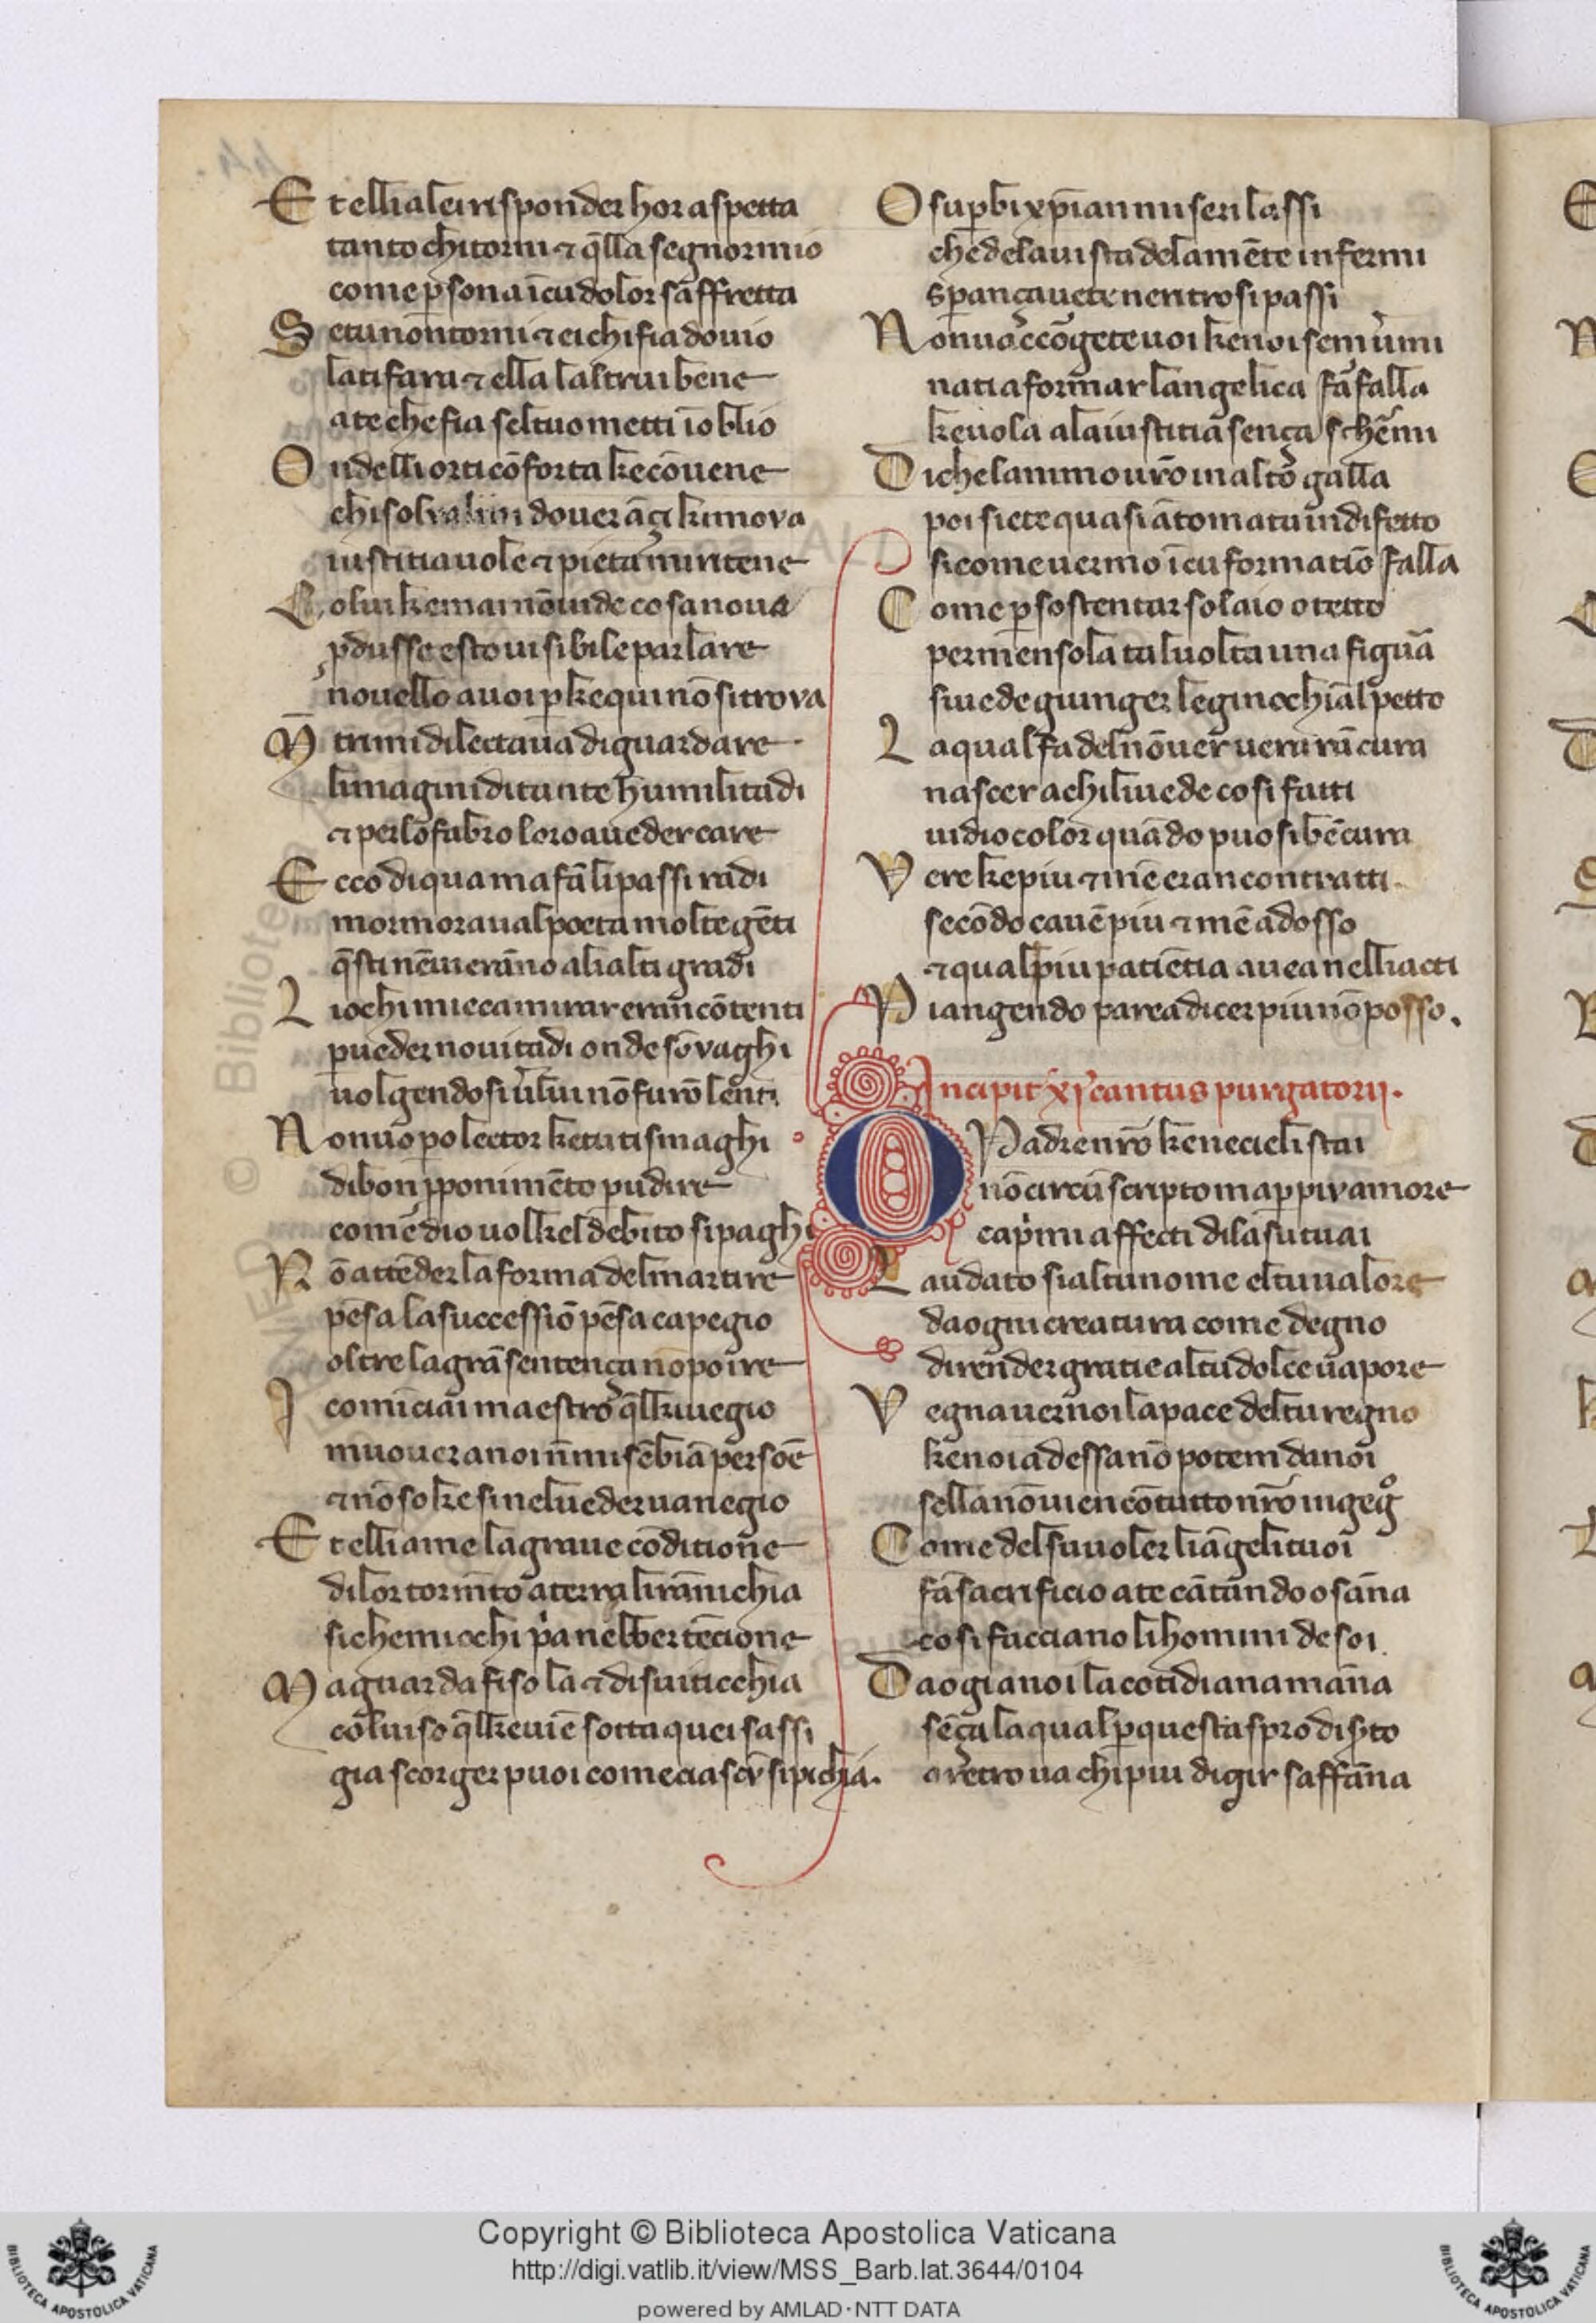 E t elli a lei risponder hor aspetta
tanto chi torni ⁊ q̄lla segnor mio
come ꝑsona ī cu dolor saffretta
S e tu non torni ⁊ ei chi fia dovio
la ti fara ⁊ ella laltrui bene
a te che fia sel tuo metti ī oblio
O ndelli or ti cōforta ke cōuene
chi solva
iustitia vole ⁊ pieta mi ritene
C olui ke mai nō uide cosa nova
ꝓdusse esto uisibile parlare
novello a voi ꝑ ke qui nō si trova
M̄ tri mi dilectava di guardare
limagini di tante humilitadi
⁊ per lo fabro loro a ueder care
E cco di qua ma fā li passi radi
mormorava l poeta molte gēti
q̄sti nē uierāno a li alti gradi
L i ochi miei ca mirar eran cōtenti
ꝑ ueder nouitadi onde sō vaghi
uolgendosi uer lui nō furō lenti
N on uo po lector ke tu ti smaghi
di bon ꝓponimēto ꝑ udire
come dio uol kel debito si paghi
N ō attēder la forma del martire
pēsa la successiō pēsa ca pegio
oltre la grā sentença nō po ire
I comīciai maestro q̄l ki uegio
muouer a noi nō mi sēbiā persōe
⁊ nō so ke si nel ueder uanegio
E t elli a me la graue cōditione
di lor tormīto a terra li rānichia
si che mi ochi p̄a nebber tēcione
M a guarda fiso la ⁊ disuiticchia
col uiso q̄l ke uiē sotta quei sassi
gia scorger puoi come ciascū si pichia.
O suꝑbi xp̄iani miseri lassi
che de la uista de la mēte infermi
sꝑança uete ne ritrosi passi
N on uaccōgete uoi ke noi sem uermi
nati a formar langelica farfalla
ke uola a la iustitia sença schermi
D i che lanimo ur̄o in alto galla
poi siete quasi ātomata in difetto
si come uermo ī cu formatiō falla
C ome ꝑ sostentar solaio o tetto
per mensola tal uolta una figura
si uede giunger le ginochia al petto
L a qual fa del nō uer uera rācura
nascer a chi li uede cosi fatti
uidio color quādo puosi bē cura
V ere ke piu ⁊ mē eran contratti.
secōdo cauē piu ⁊ mē a dosso
⁊ qual piu patiētia auea nelli acti
P iangendo parea dicer piu nō posso.
Incipit xj cantus purgatorij.
O Padre nr̄o ke ne cieli stai
nō circūscripto ma ꝑ piu amore
ca p̄mi affecti di la su tu ai
L audato sia l tu nome el tu ualore
da ogni creatura come degno
di render gratie al tu dolce uapore
V egna uer noi la pace del tu regno
ke noi ad essa nō potem da noi
sella nō uien cō tutto nr̄o ingegᵒ
C ome del su uoler li āgeli tuoi
fā sacrificio a te cātando osāna
cosi facciano li homini de soi.
D a ogi a noi la cotidiana māna
sēça la qual ꝑ questo aspro diserto
a retro ua chi piu di gir saffāna
Copyright © Biblioteca Apostolica Vaticana
http://digi.vatlib.it/view/MSS_Barb.lat.3644/0104
powered by AMLAD·NTT DATA